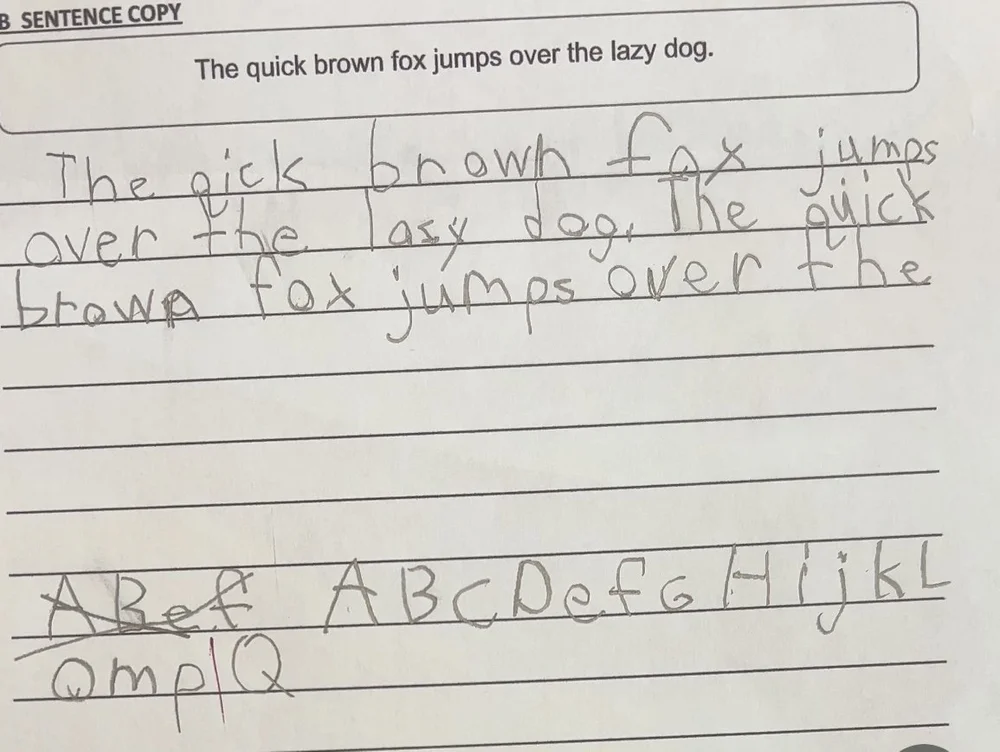 B SENTENCE COPY
The quick brown fox jumps over the lazy dog.
The qick brown fox jumps
over the lasy dog. The quick
brown fox jumps over the
ABef ABCDefGHijkL
QmplQ